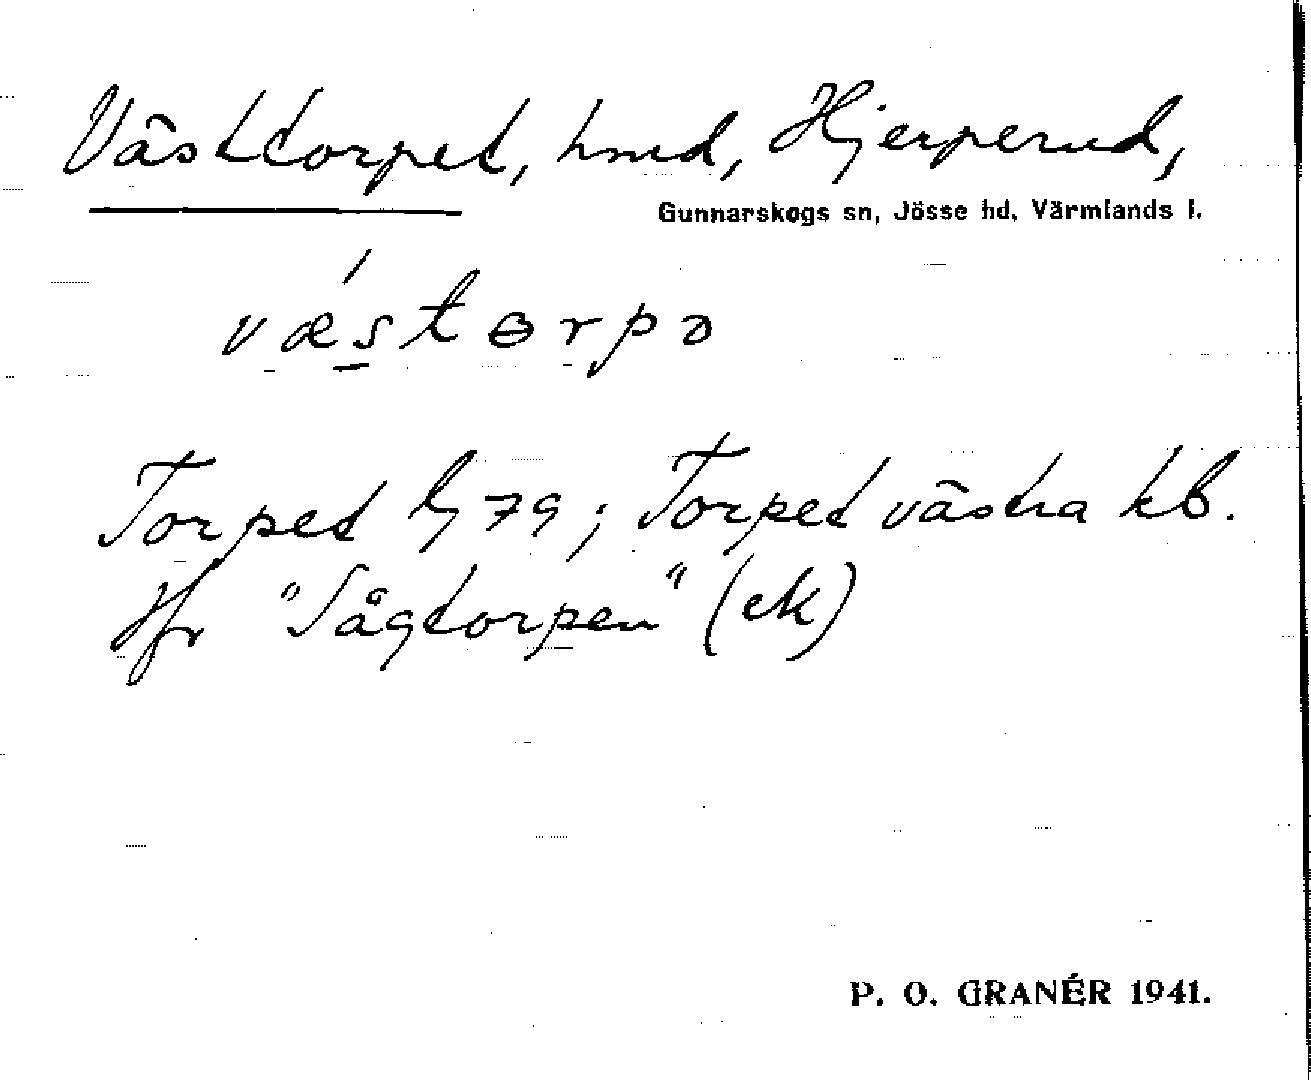 Västtorpet, hmd, Hjerperud,
Gunnarskogs sn, Jösse hd, Värmlands l.
væ´stɵrpə
Torpet 79; Torpet västra kb.
Jfr "Sågtorpen" (ek)
P. O. GRANÉR 1941.